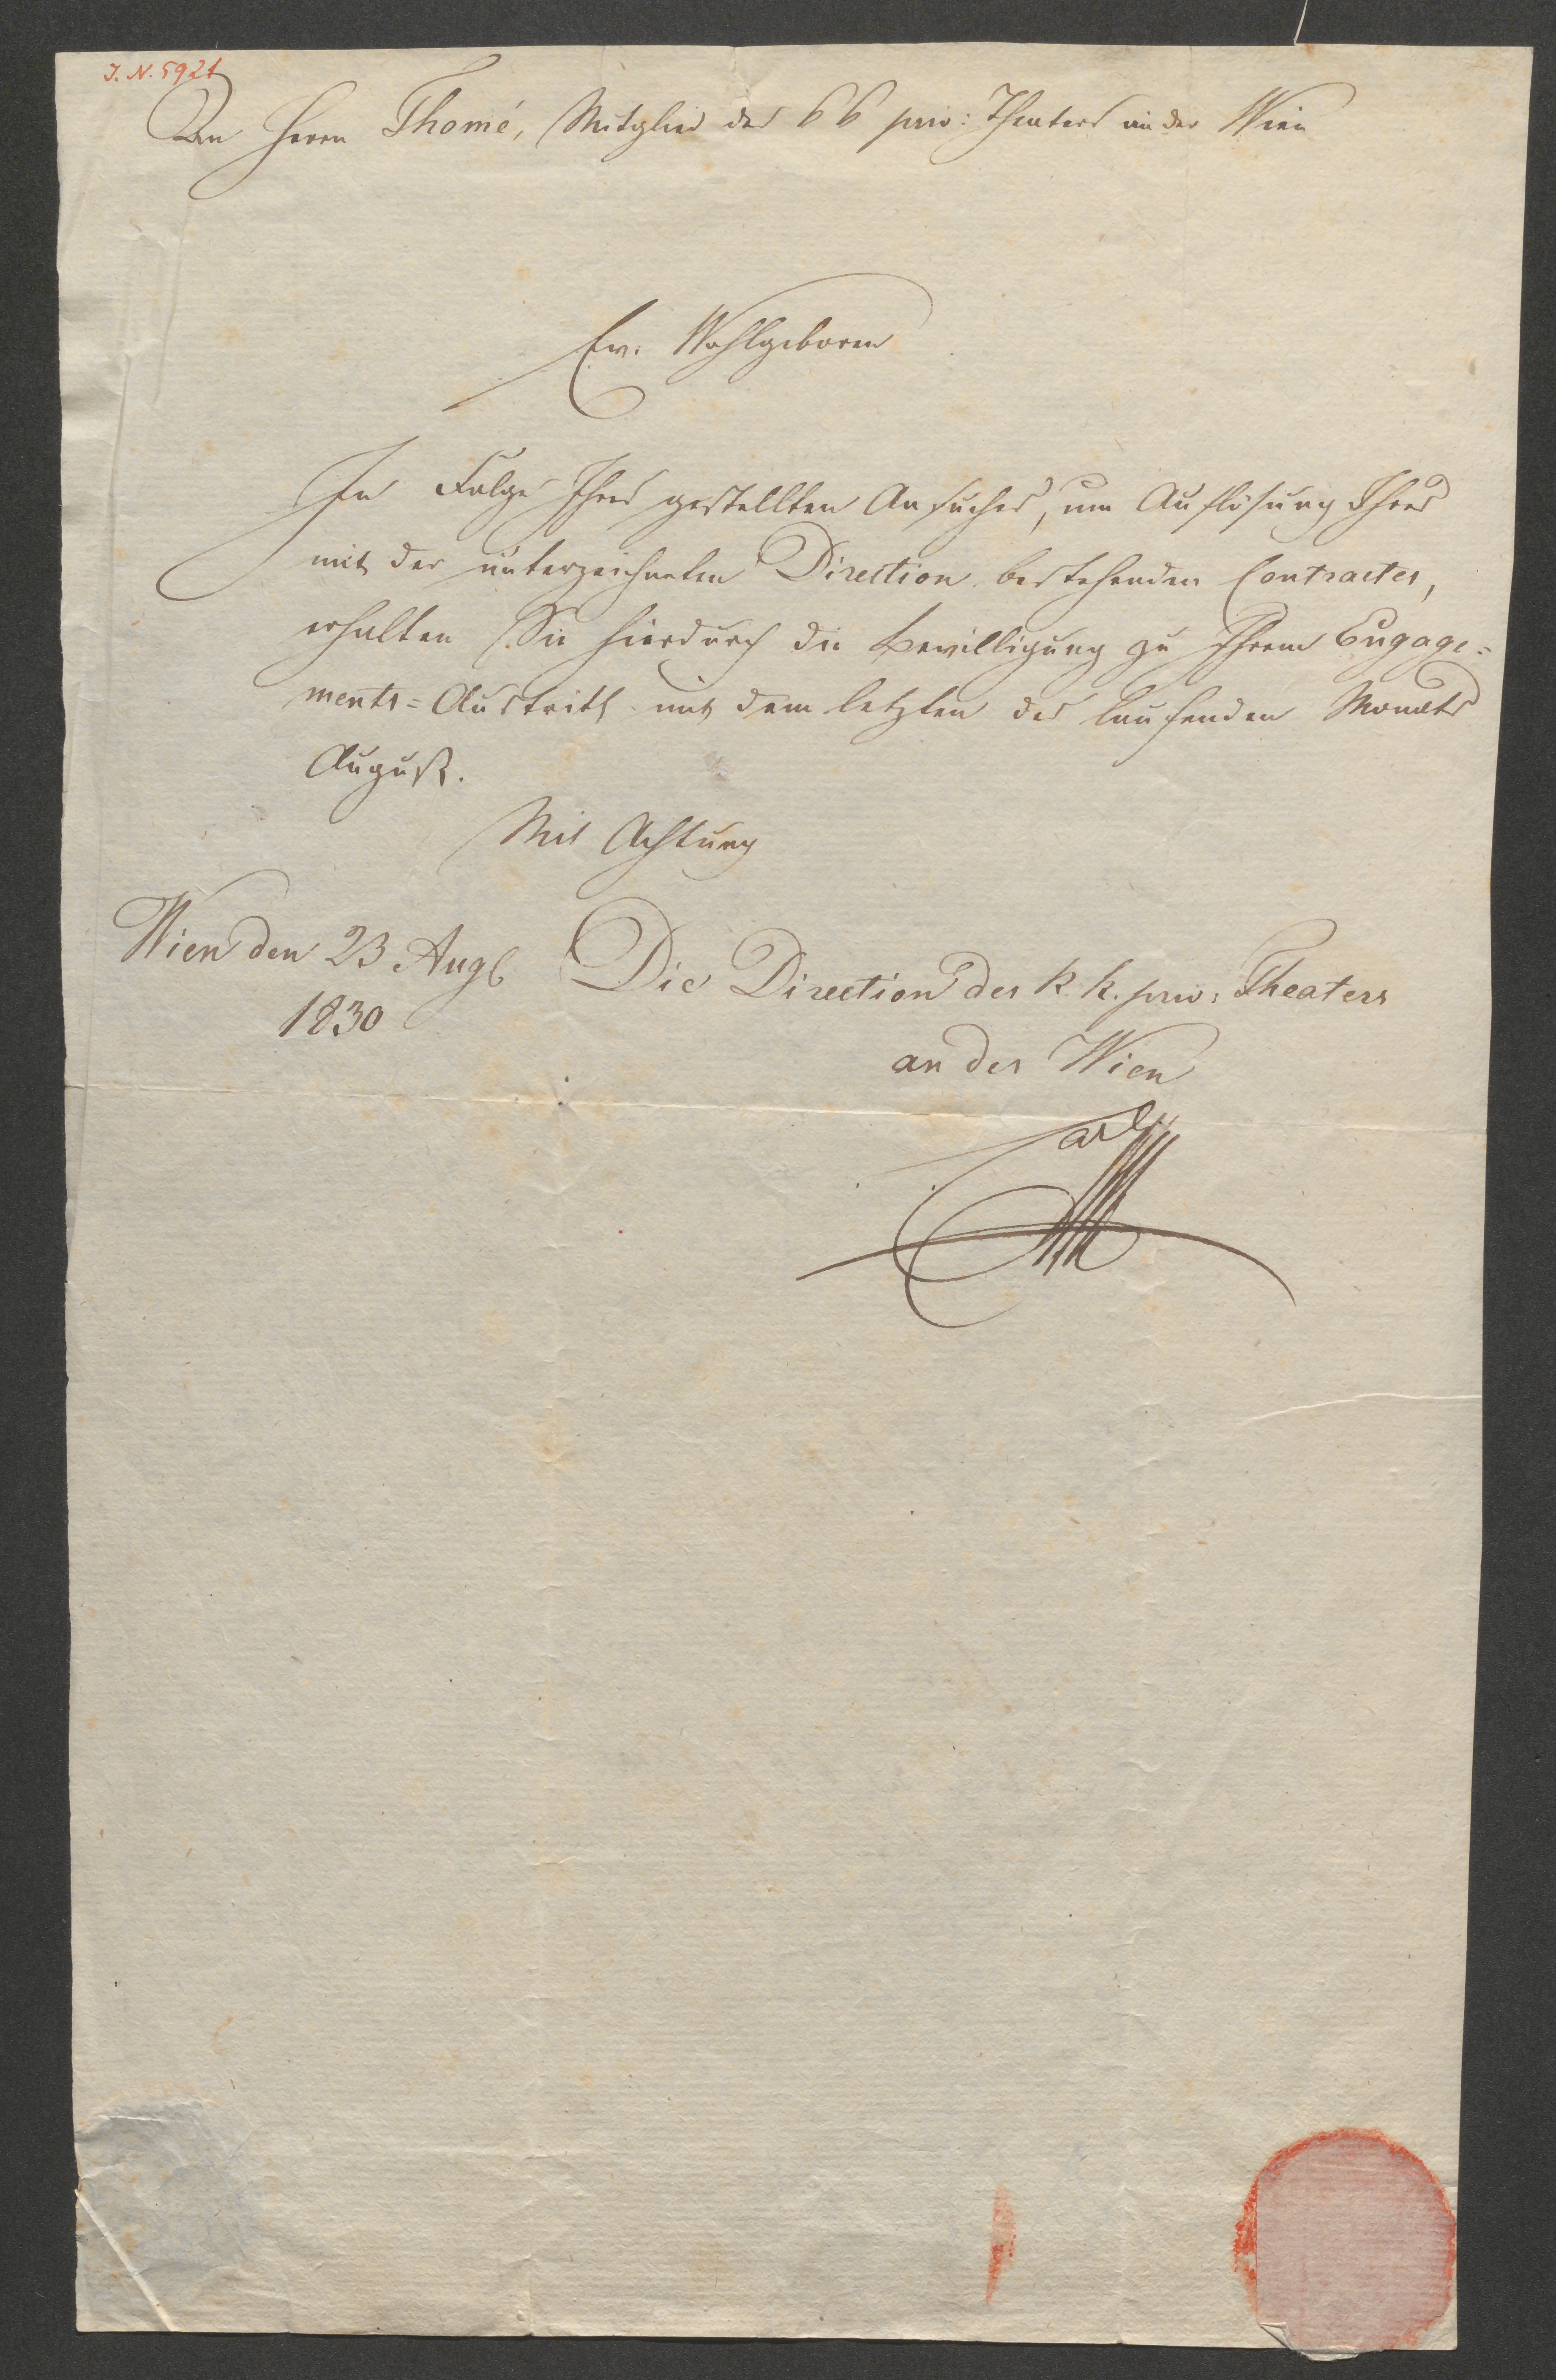 J. N. 5921
An Herrn Thomé, Mitglied des kk priv: Theaters an der Wien
Ew. Wohlgeboren
In Folge Ihres gestellten Ansuches, um Auflösung Ihres
mit der unterzeichneten Direction bestehenden Contractes,
erhalten Sie hierdurch die Bewilligung zu Ihrem Engage=
ments=Austritt mit dem letzten des laufenden Monats
August.
Mit Achtung
Wien den 23 Augt
1830
Die Direction des k. k. priv: Theaters
an der Wien
Carl